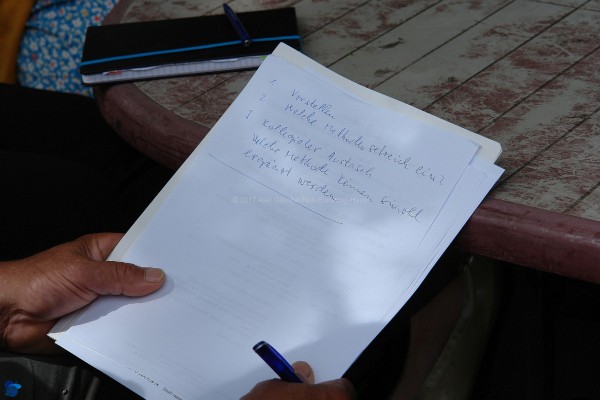 1. Vorstellen
2. Welche Methoden setze ich ein?
3. Kollegialer Austausch
Welche Methode können sinnvoll
ergänzt werden
© 2017